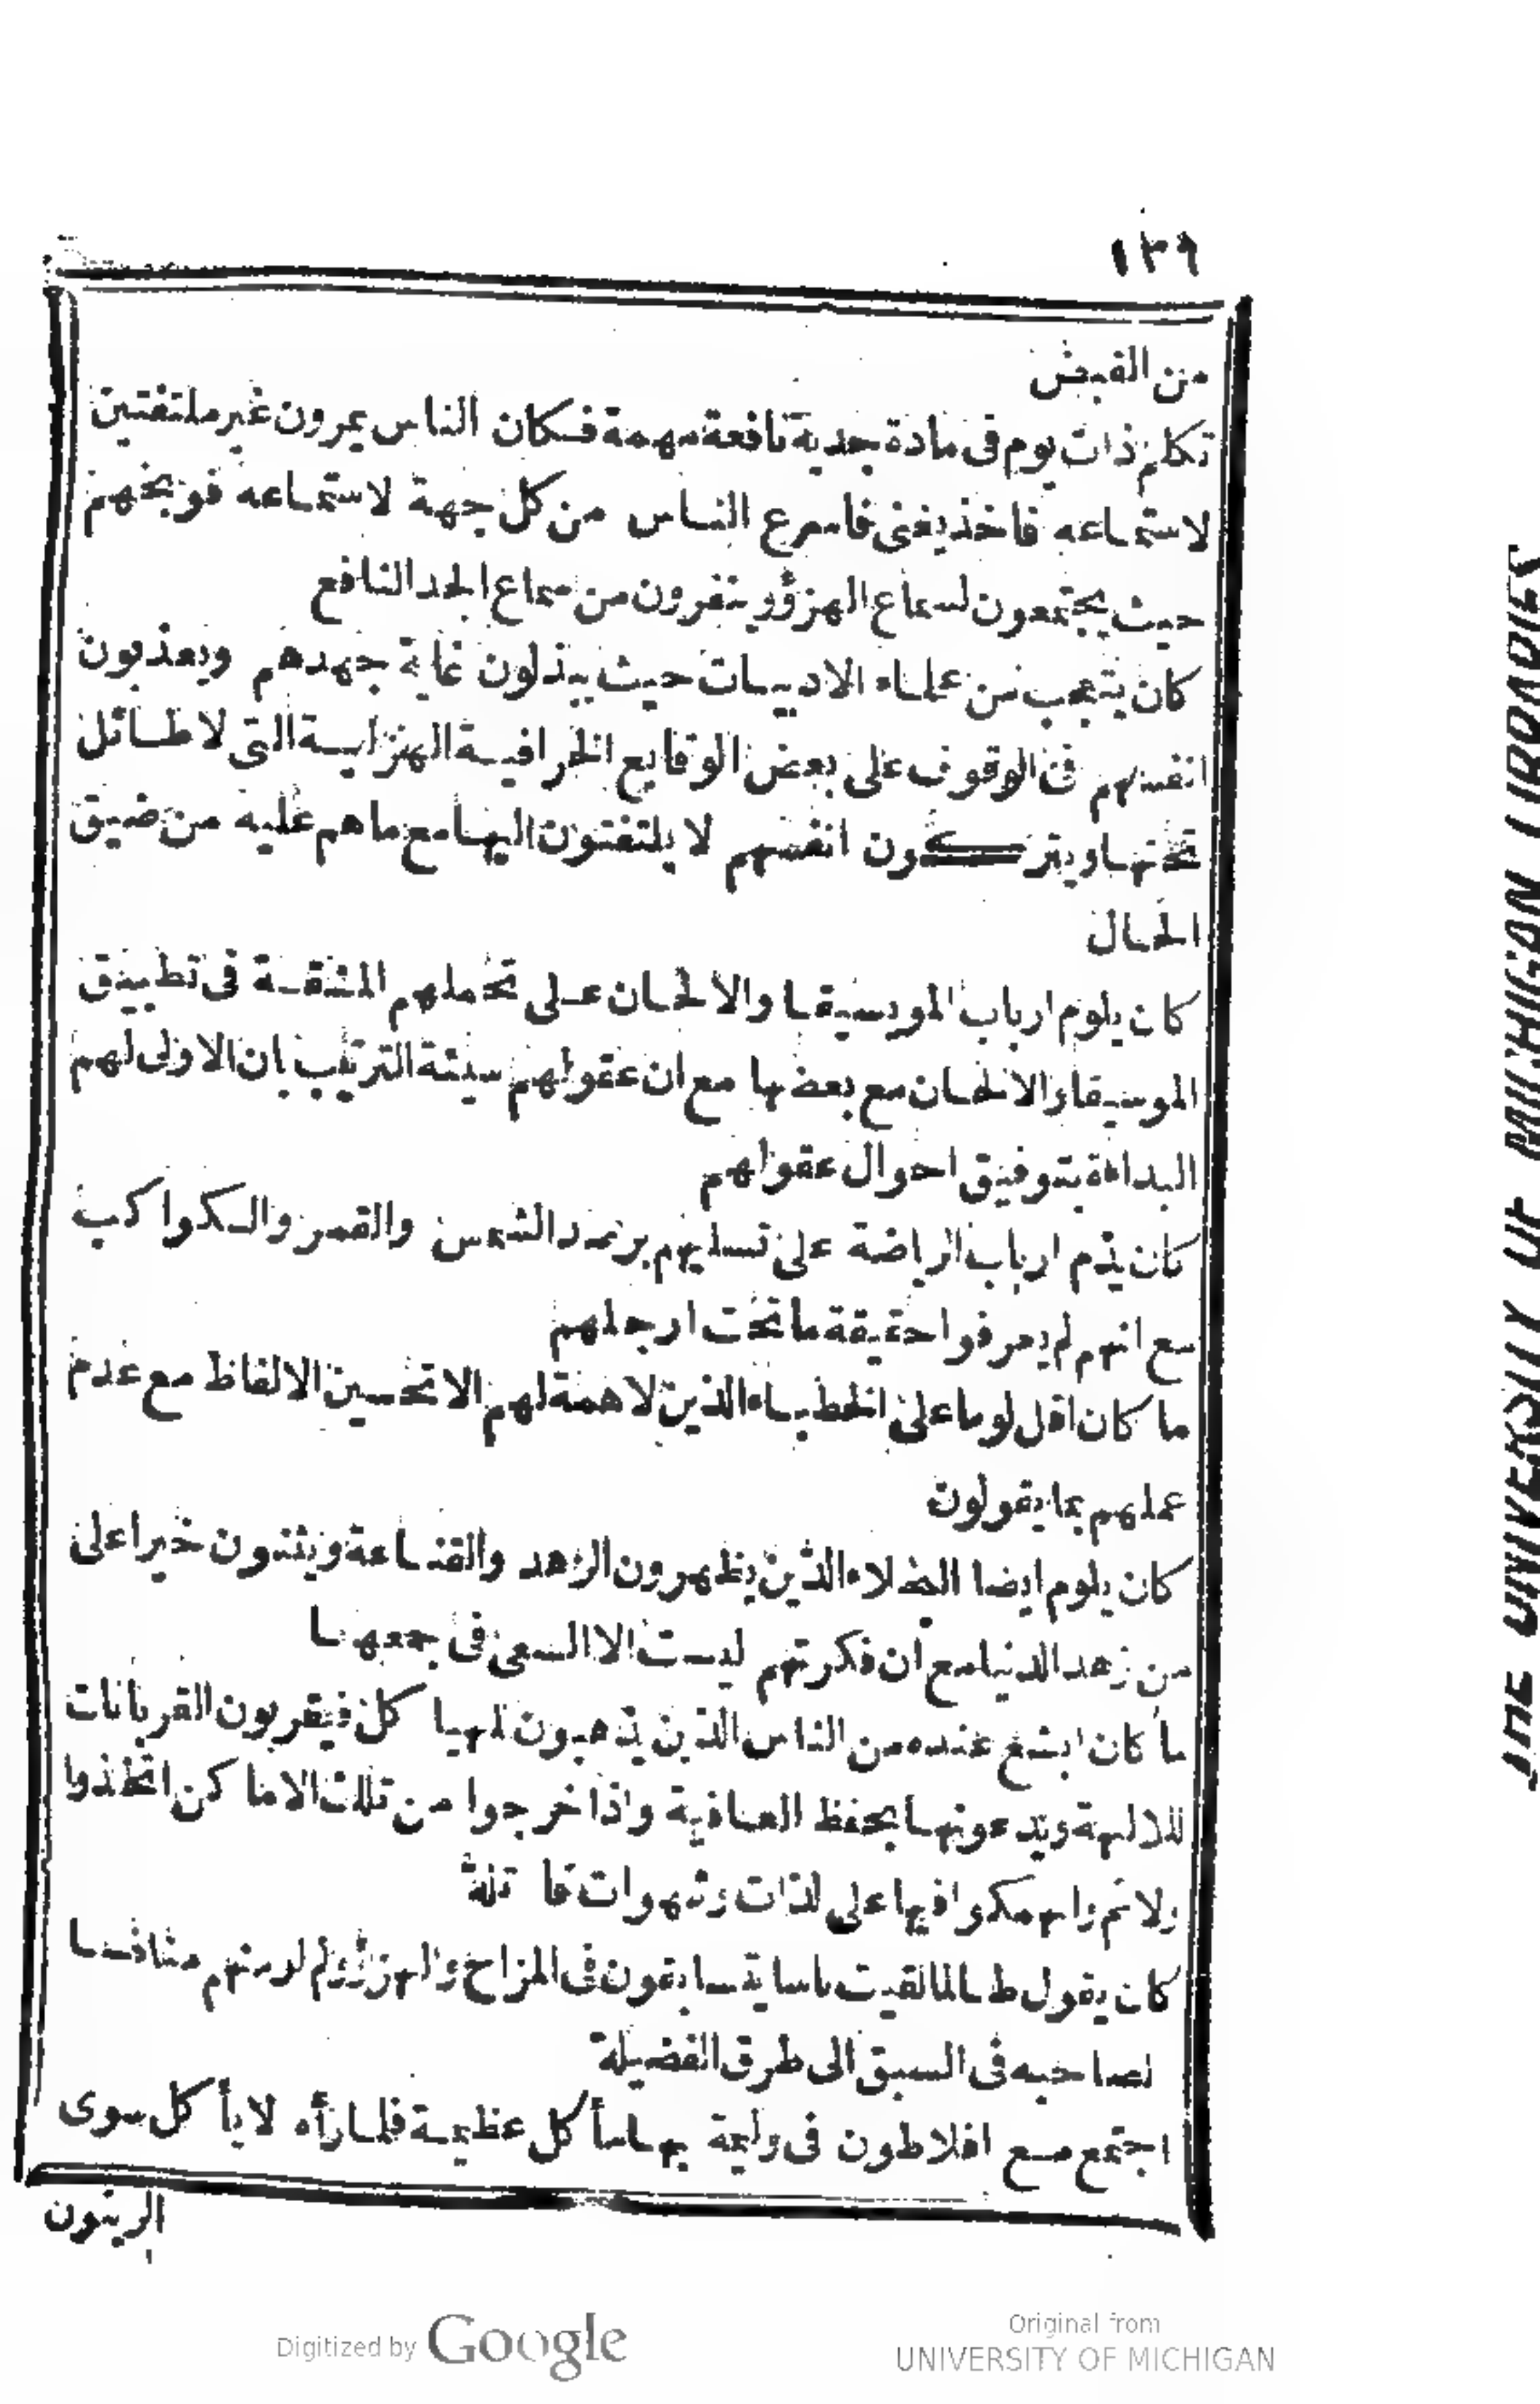 ١٣٩
من القبض
تكلم ذات يوم فى مادة جدية نافعة مهمة فكان الناس يمرون غير ملتفتين
لاستماعه فاخذ يغنى فاسرع الناس من كل جهة لاستماعه فوبخهم
حيث يجتمعون لسماع الهزؤ وينفرون من سماع الجد النافع
كان يتعجب من علماء الادبيات حيث يبذلون غاية جهدهم ويعذبون
انفسهم فى الوقوف على بعض الوقايع الخرافية الهزلية التى لا طائل
تحتها ويتركون انفسهم لا يلتفتون اليها مع ما هم عليه من ضيق
الحال
كان يلوم ارباب الموسيقا والالحان على تحملهم المشقة فى تطبيق
الموسيقا والالحان مع بعضها مع ان عقولهم سيئة الترتيب بان الاولى لهم
البداءة بتوفيق احوال عقولهم
كان يذم ارباب الرياضة على تسليهم برصد الشمس والقمر والكواكب
مع انهم لم يعرفوا حقيقة ما تحت ارجلهم
ما كان اقل لوما على الخطباء الذين لا همة لهم الا تحسين الالفاظ مع عدم
عملهم بما يقولون
كان يلوم ايضا البخلاء الذين يظهرون الزهد والقناعة ويثنون خيرا على
من زهد الدنيا مع ان فكرتهم ليست الا السعى فى جمعها
ما كان ابشع عنده من الناس الذين يذهبون للهياكل فيقربون القربانات
للالهة ويدعونها بحفظ العافية واذا خرجوا من تلك الاماكن اتخذوا
ولائم وانهمكوا فيها على لذات وشهوات قاتلة
كان يقول طالما لقيت ناسا يتسابقون فى المزاح والهزؤ ولم ار منهم منافسا
لصاحبه فى السبق الى طرق الفضيلة
اجتمع مع افلاطون فى وليمة بها مأكل عظيمة فلما رأه لا يأكل سوى
الزيتون
Digitized by Google
Original from
UNIVERSITY OF MICHIGAN